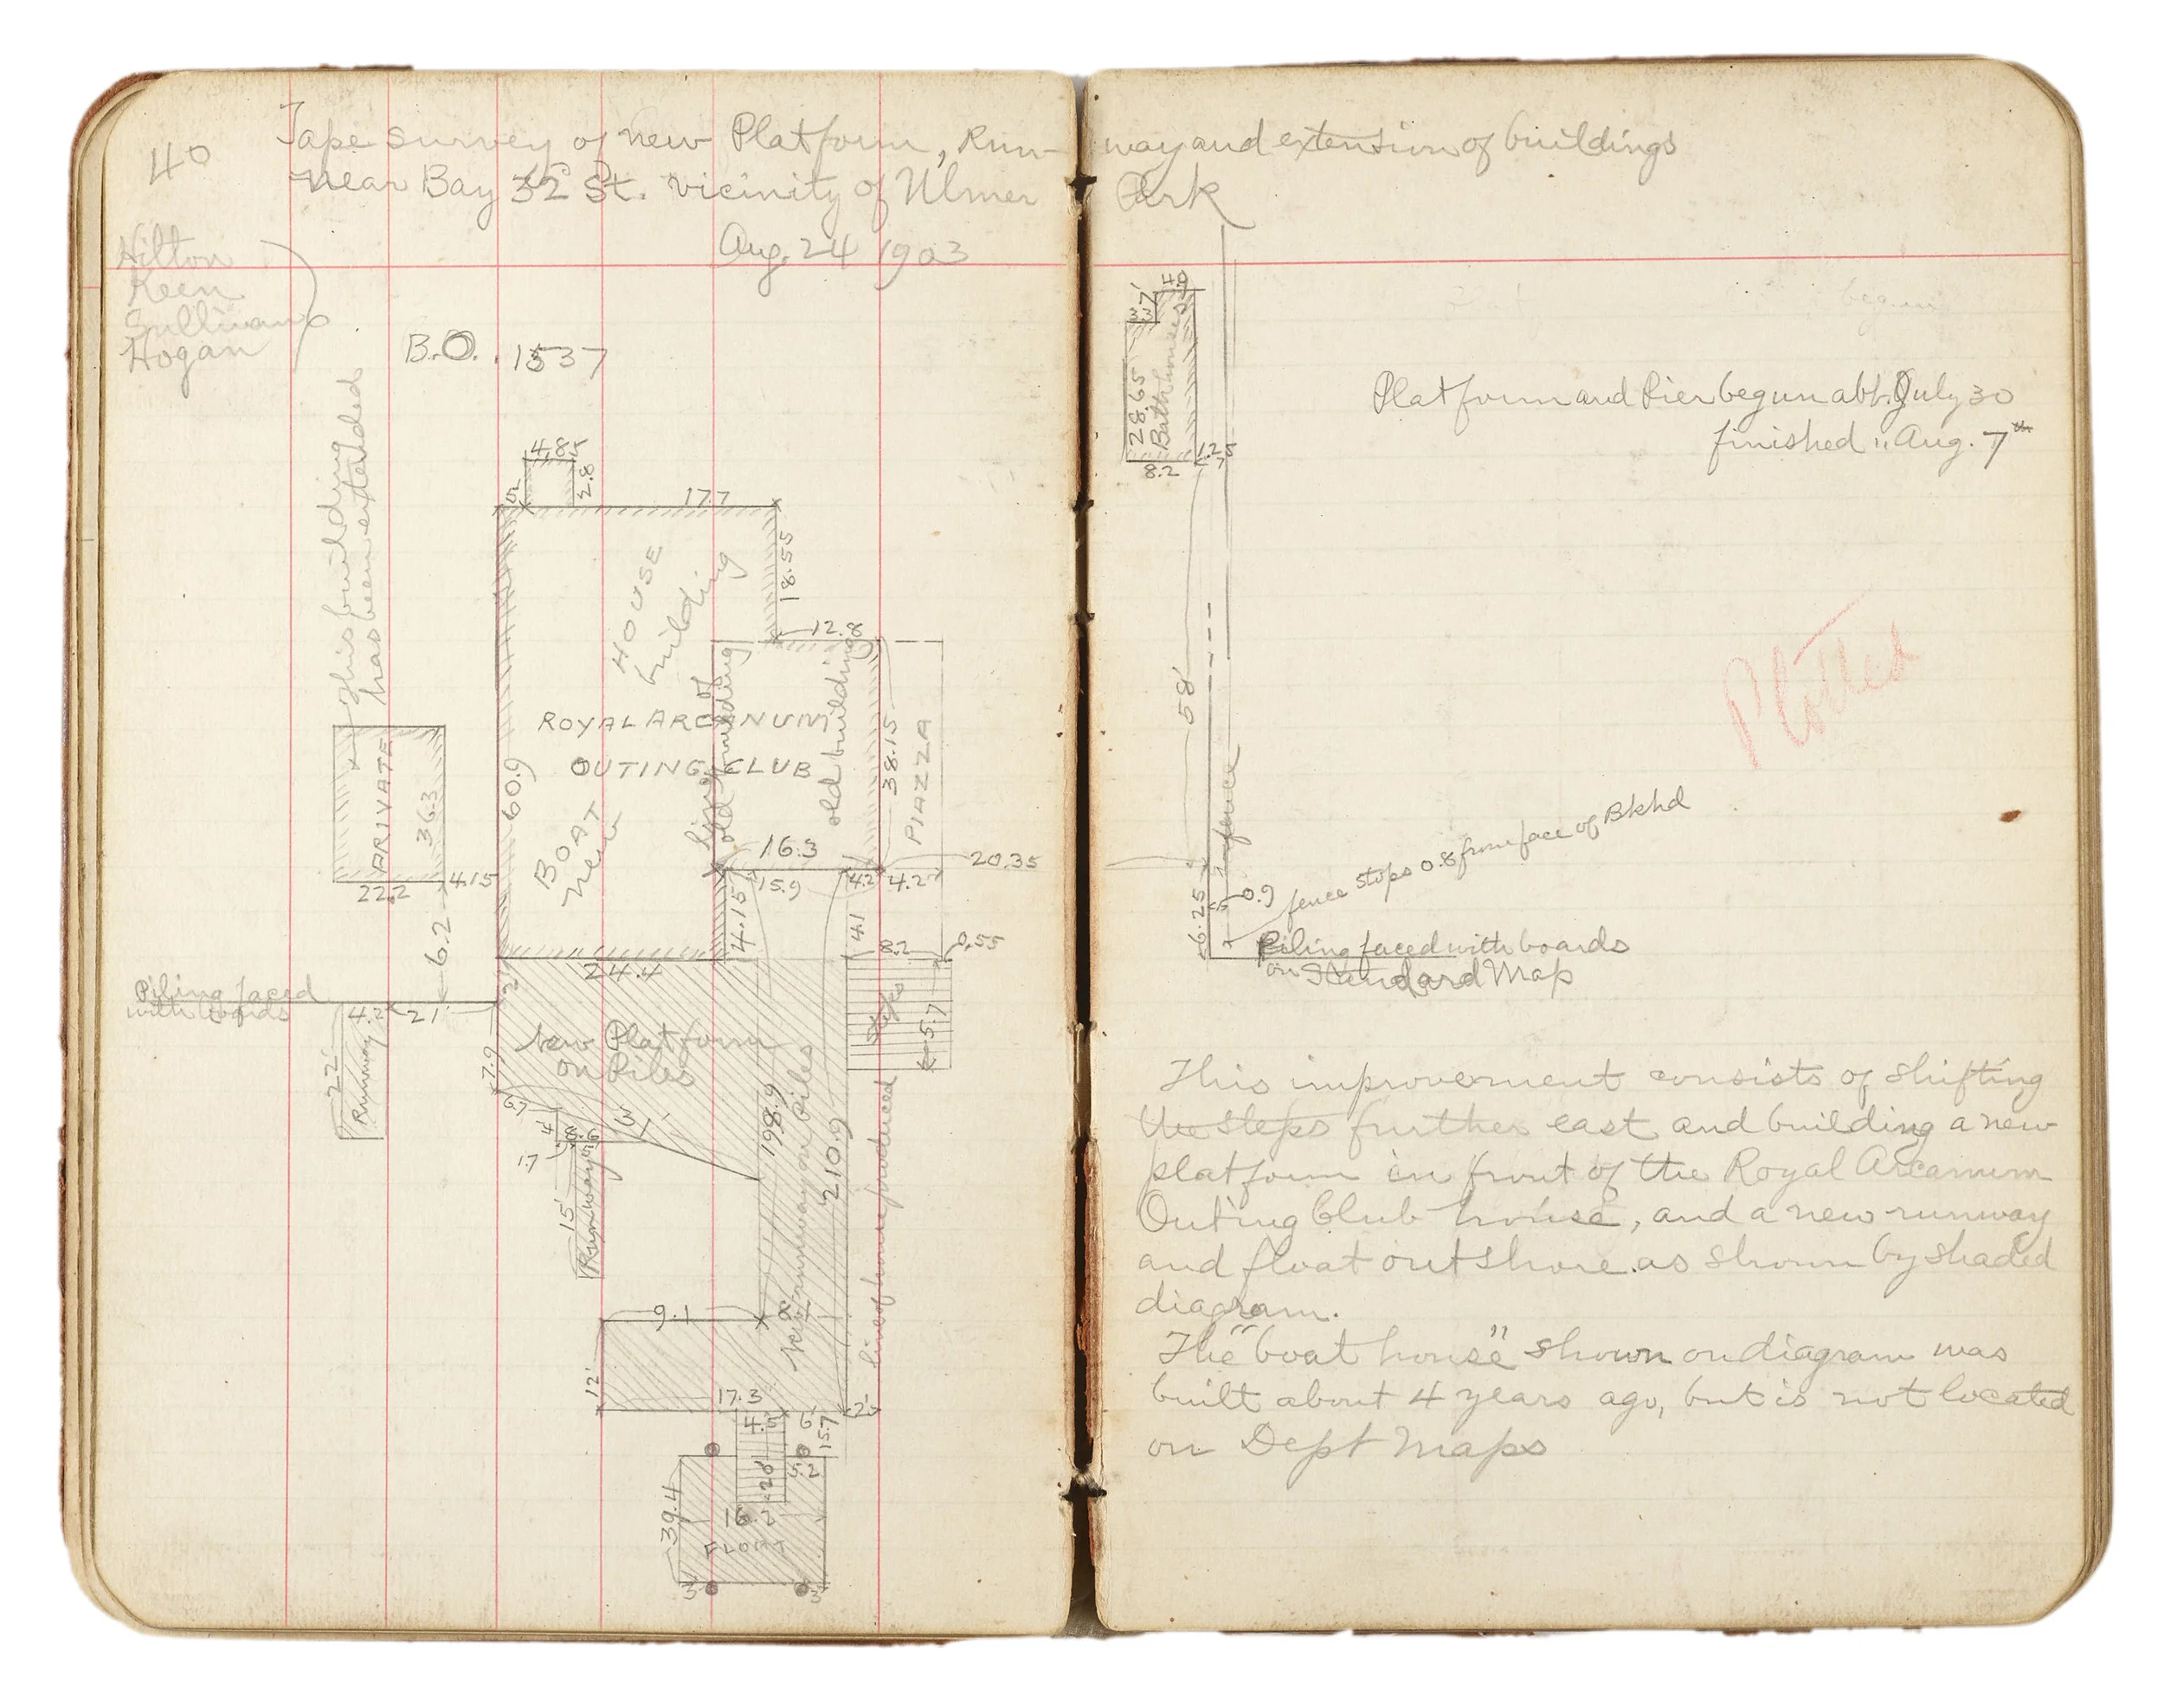 40
Tape survey of new Platform, Run-way and extension of buildings
near Bay 32 St. vicinity of Ulmer Park
Aug. 24 1903
Hilton
Keen
Sullivan
Hogan
B.O. 1537
This building
has been extended
4.8
2.8
17.7
18.55
12.8
HOUSE
building
ROYAL ARCANUM
OUTING CLUB
BOAT
New
line of
old building
old building
38.15
PIAZZA
60.9
PRIVATE
36.3
22.2
4.15
6.2
16.3
15.9
4.2
4.2
20.35
4.15
4.1
8.2
0.55
24.4
2
Steps
5.7
Piling faced
with boards
4.2
21'
22'
Runway
New Platform
on Piles
7.9
6.7
4
8.6
1.7
15'
Runway
31'
198.9
New runway on Piles
210.9
line of house produced
9.1
8
12'
17.3
2'
4.5
6
15.7
5.2
20'
39.4
16.2
FLOAT
3'
3'
4.9
3.7
3.3
28.65
Bath houses
8.2
1.25
Platform and Pier begun abt. July 30
finished " Aug. 7th
Plotted
58'
fence
6.25
0.9
fence stops 0.8 from face of Bkhd
Piling faced with boards
on Standard Map
This improvement consists of shifting
the steps further east and building a new
platform in front of the Royal Arcanum
Outing Club house, and a new runway
and float outshore as shown by shaded
diagram.
The "boat house" shown on diagram was
built about 4 years ago, but is not located
on Dept Maps